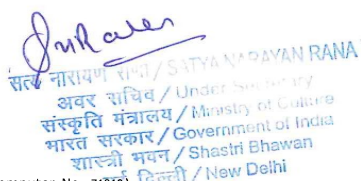 सत्य नारायण राणा / SATYA NARAYAN RANA
अवर सचिव / Under Secretary
संस्कृति मंत्रालय / Ministry of Culture
भारत सरकार / Government of India
शास्त्री भवन / Shastri Bhawan
दिल्ली / New Delhi